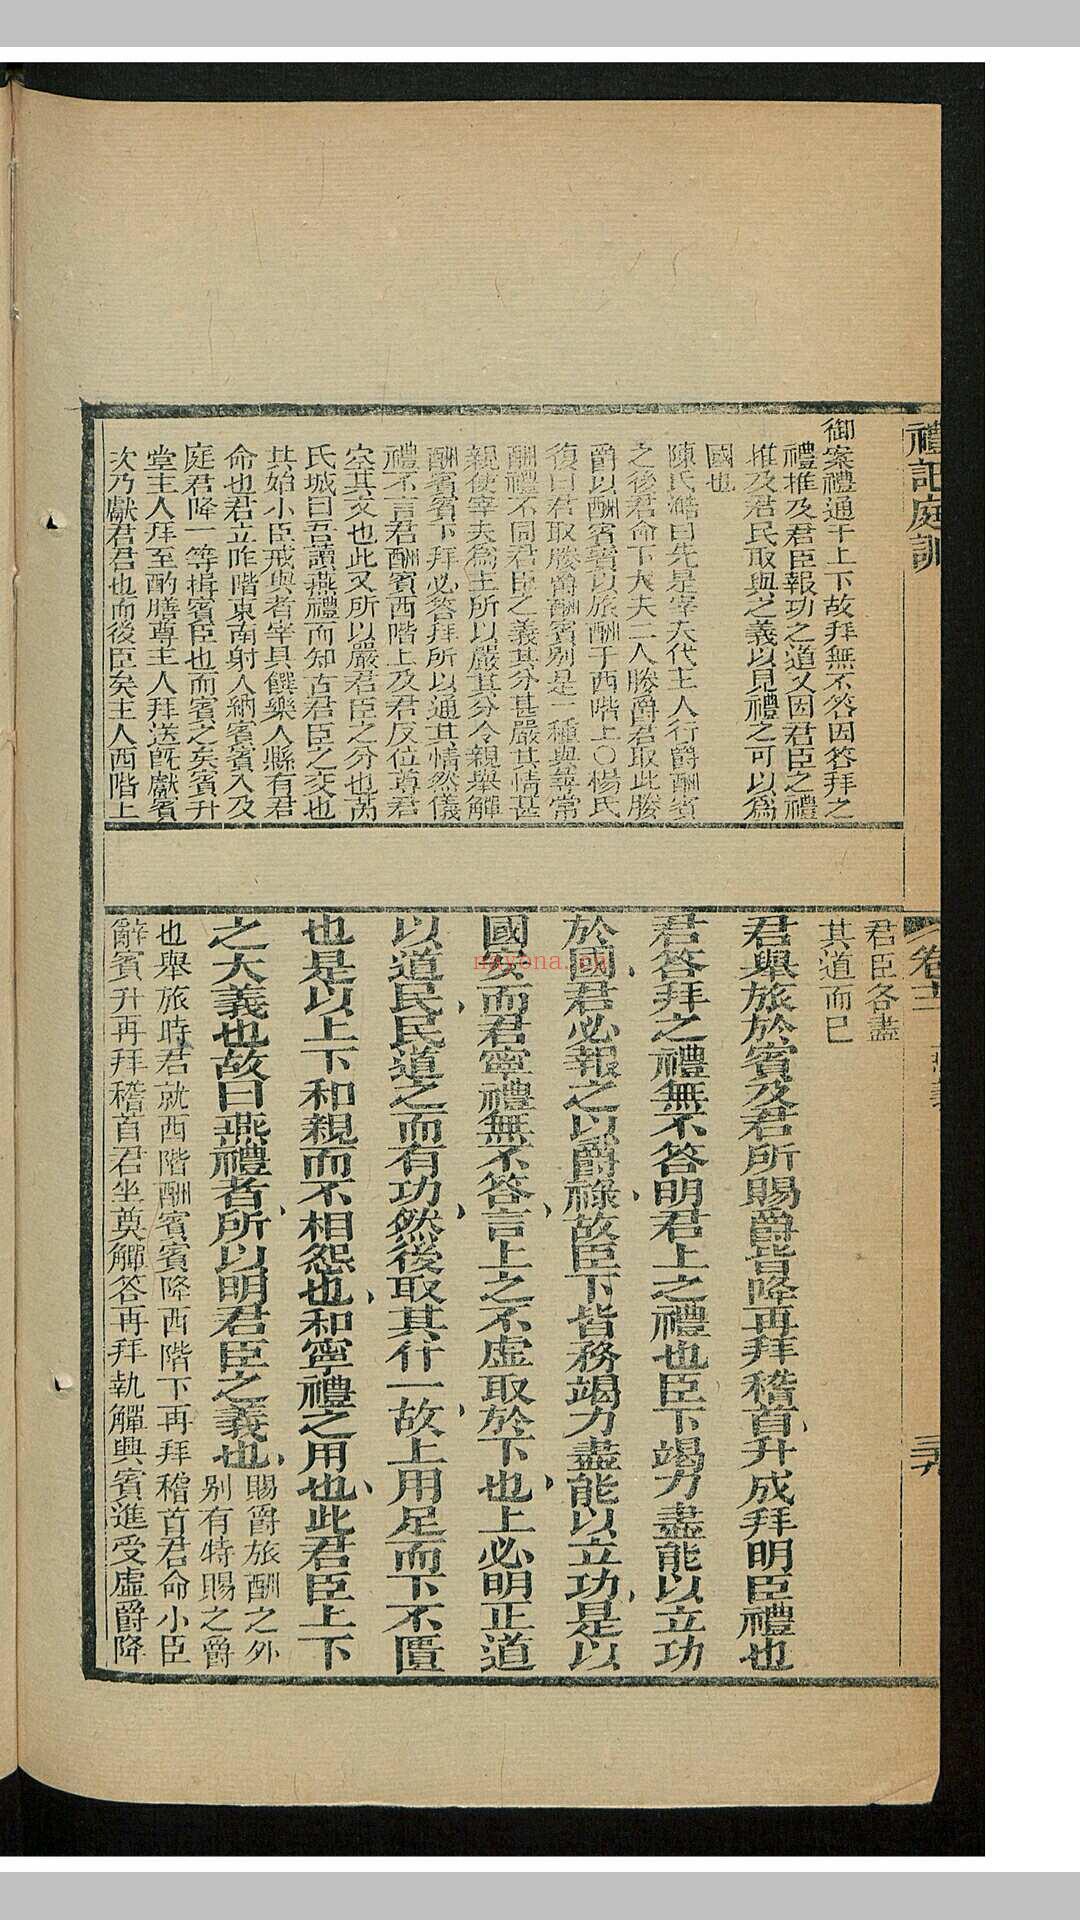 禮記庭訓
卷十二
御案禮通乎上下故拜無不答因答拜之
禮推及君臣報功之道又因君臣之禮
推及君民取與之義以見禮之可以爲
國也
陳氏澔曰先是宰夫代主人行爵酬賓
之後君命下大夫二人媵爵君取此媵
爵以酬賓賓以旅酬于西階上○楊氏
復曰君取媵爵酬賓别是一種與尋常
酬禮不同君臣之義其分甚嚴其情甚
親使宰夫爲主所以嚴其分今親舉觶
酬賓賓下拜必答拜所以通其情然儀
禮不言君酬賓西階上及君反位尊君
空其文也此又所以嚴君臣之分也萬
氏城曰吾讀燕禮而知古君臣之交也
其始小臣戒與者宰具饌樂人縣有君
命也君立阼階東南射人納賓賓入及
庭君降一等揖賓臣也而賓之矣賓升
堂主人拜至酌膳尊主人拜送旣獻賓
次乃獻君君也而後臣矣主人西階上
君臣各盡
其道而已
君舉旅於賓及君所賜爵皆降再拜稽首升成拜明臣禮也
君答拜之禮無不答明君上之禮也臣下竭力盡能以立功
於國君必報之以爵祿故臣下皆務竭力盡能以立功是以
國安而君寧禮無不答言上之不虛取於下也上必明正道
以道民民道之而有功然後取其什一故上用足而下不匱
也是以上下和親而不相怨也和寧禮之用也此君臣上下
之大義也故曰燕禮者所以明君臣之義也賜爵旅酬之外
别有特賜之爵
也舉旅時君就西階酬賓賓降西階下再拜稽首君命小臣
辭賓升再拜稽首君坐奠觶答再拜執觶興賓進受虛爵降
nayona.cn